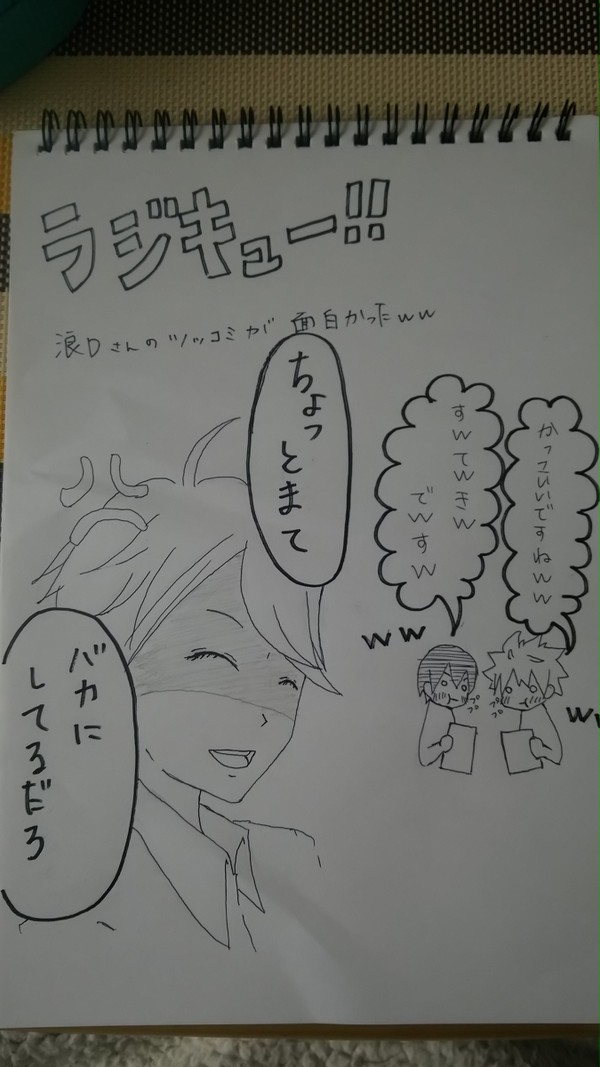 ラジキュー!!
浪Dさんのツッコミが面白かったww
ちょっとまて
かっこいいですねww
すwてwきw
でwすw
ww
プププ
プププ
ww
バカに
してるだろ